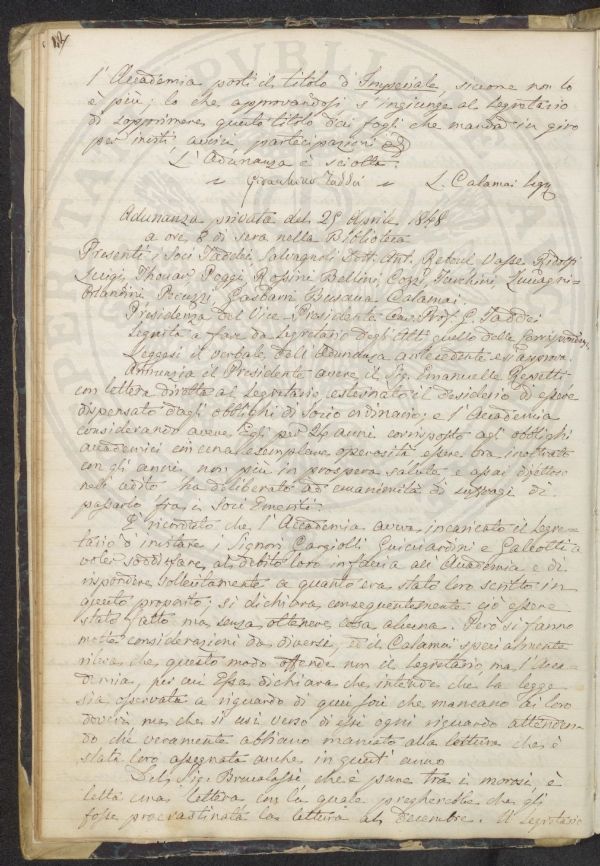 l'Accademia porti il titolo d'Imperiale, siccome non lo
è più; lo che approvandosi s'ingiunge al Segretario
di sopprimere questo titolo dai fogli che manda in giro
per inviti, avvisi, partecipazioni
L'Adunanza è sciolta.
Gioacchino Taddei L. Calamai Segr
Adunanza privata del 25 Aprile 1848
a ore 8 di sera nella Biblioteca
Presenti i Soci Taddei Salvagnoli Dott. Ant. Reboul Vasse Ridolfi
Luigi, Thouar Poggi, Rossini Bellini, Coppi, Turchini
Orlandini Pecuzzi, Gasbarri Busacca Calamai.
Presidenza del Vice-Presidente Cav. Prof. G. Taddei
Seguita a fare da Segretario degli Atti quello delle Corrispondenze
Leggesi il verbale dell'Adunanza antecedente e s'approva.
Annunzia il Presidente avere il Sig. Emanuelle Repetti
con lettera diretta al Segretario esternato il desiderio di essere
dispensato dagli obblighi di Socio ordinario; e l'Accademia
considerando avere Egli per 24 anni corrisposto agl'obblighi
accademici con una esemplare operosità essere ora inoltrato
con gli anni, non più in prospera salute e assai difettoso
nell'udito ha deliberato ad unanimità di suffragi di
passarlo fra i Soci Emeriti.
È ricordato che l'Accademia aveva incaricato il Segre-
tario d'invitare i Signori Cargiolli Guicciardini e Galeotti a
voler soddisfare al debito loro in faccia all'Accademia e di
rispondere sollecitamente a quanto era stato loro scritto in
questo proposito; si dichiara conseguentemente ciò essere
stato fatto ma senza ottenere cosa alcuna. Però si fanno
molte considerazioni da diversi, ed il Calamai specialmente
rileva che questo modo offende non il Segretario, ma l'Acca-
demia, per cui Essa dichiara che intende che la legge
sia osservata a riguardo di quei soci che mancano ai loro
doveri ma che si usi verso di essi ogni riguardo attenden-
do che veramente abbiano mancato alla lettura che è
stata loro assegnata anche in quest'anno.
Del Sig. Brucalassi che è pure tra i morosi, è
letta una lettera con la quale pregherebbe che gli
fosse procrastinata la lettura al Decembre. Il Segretario